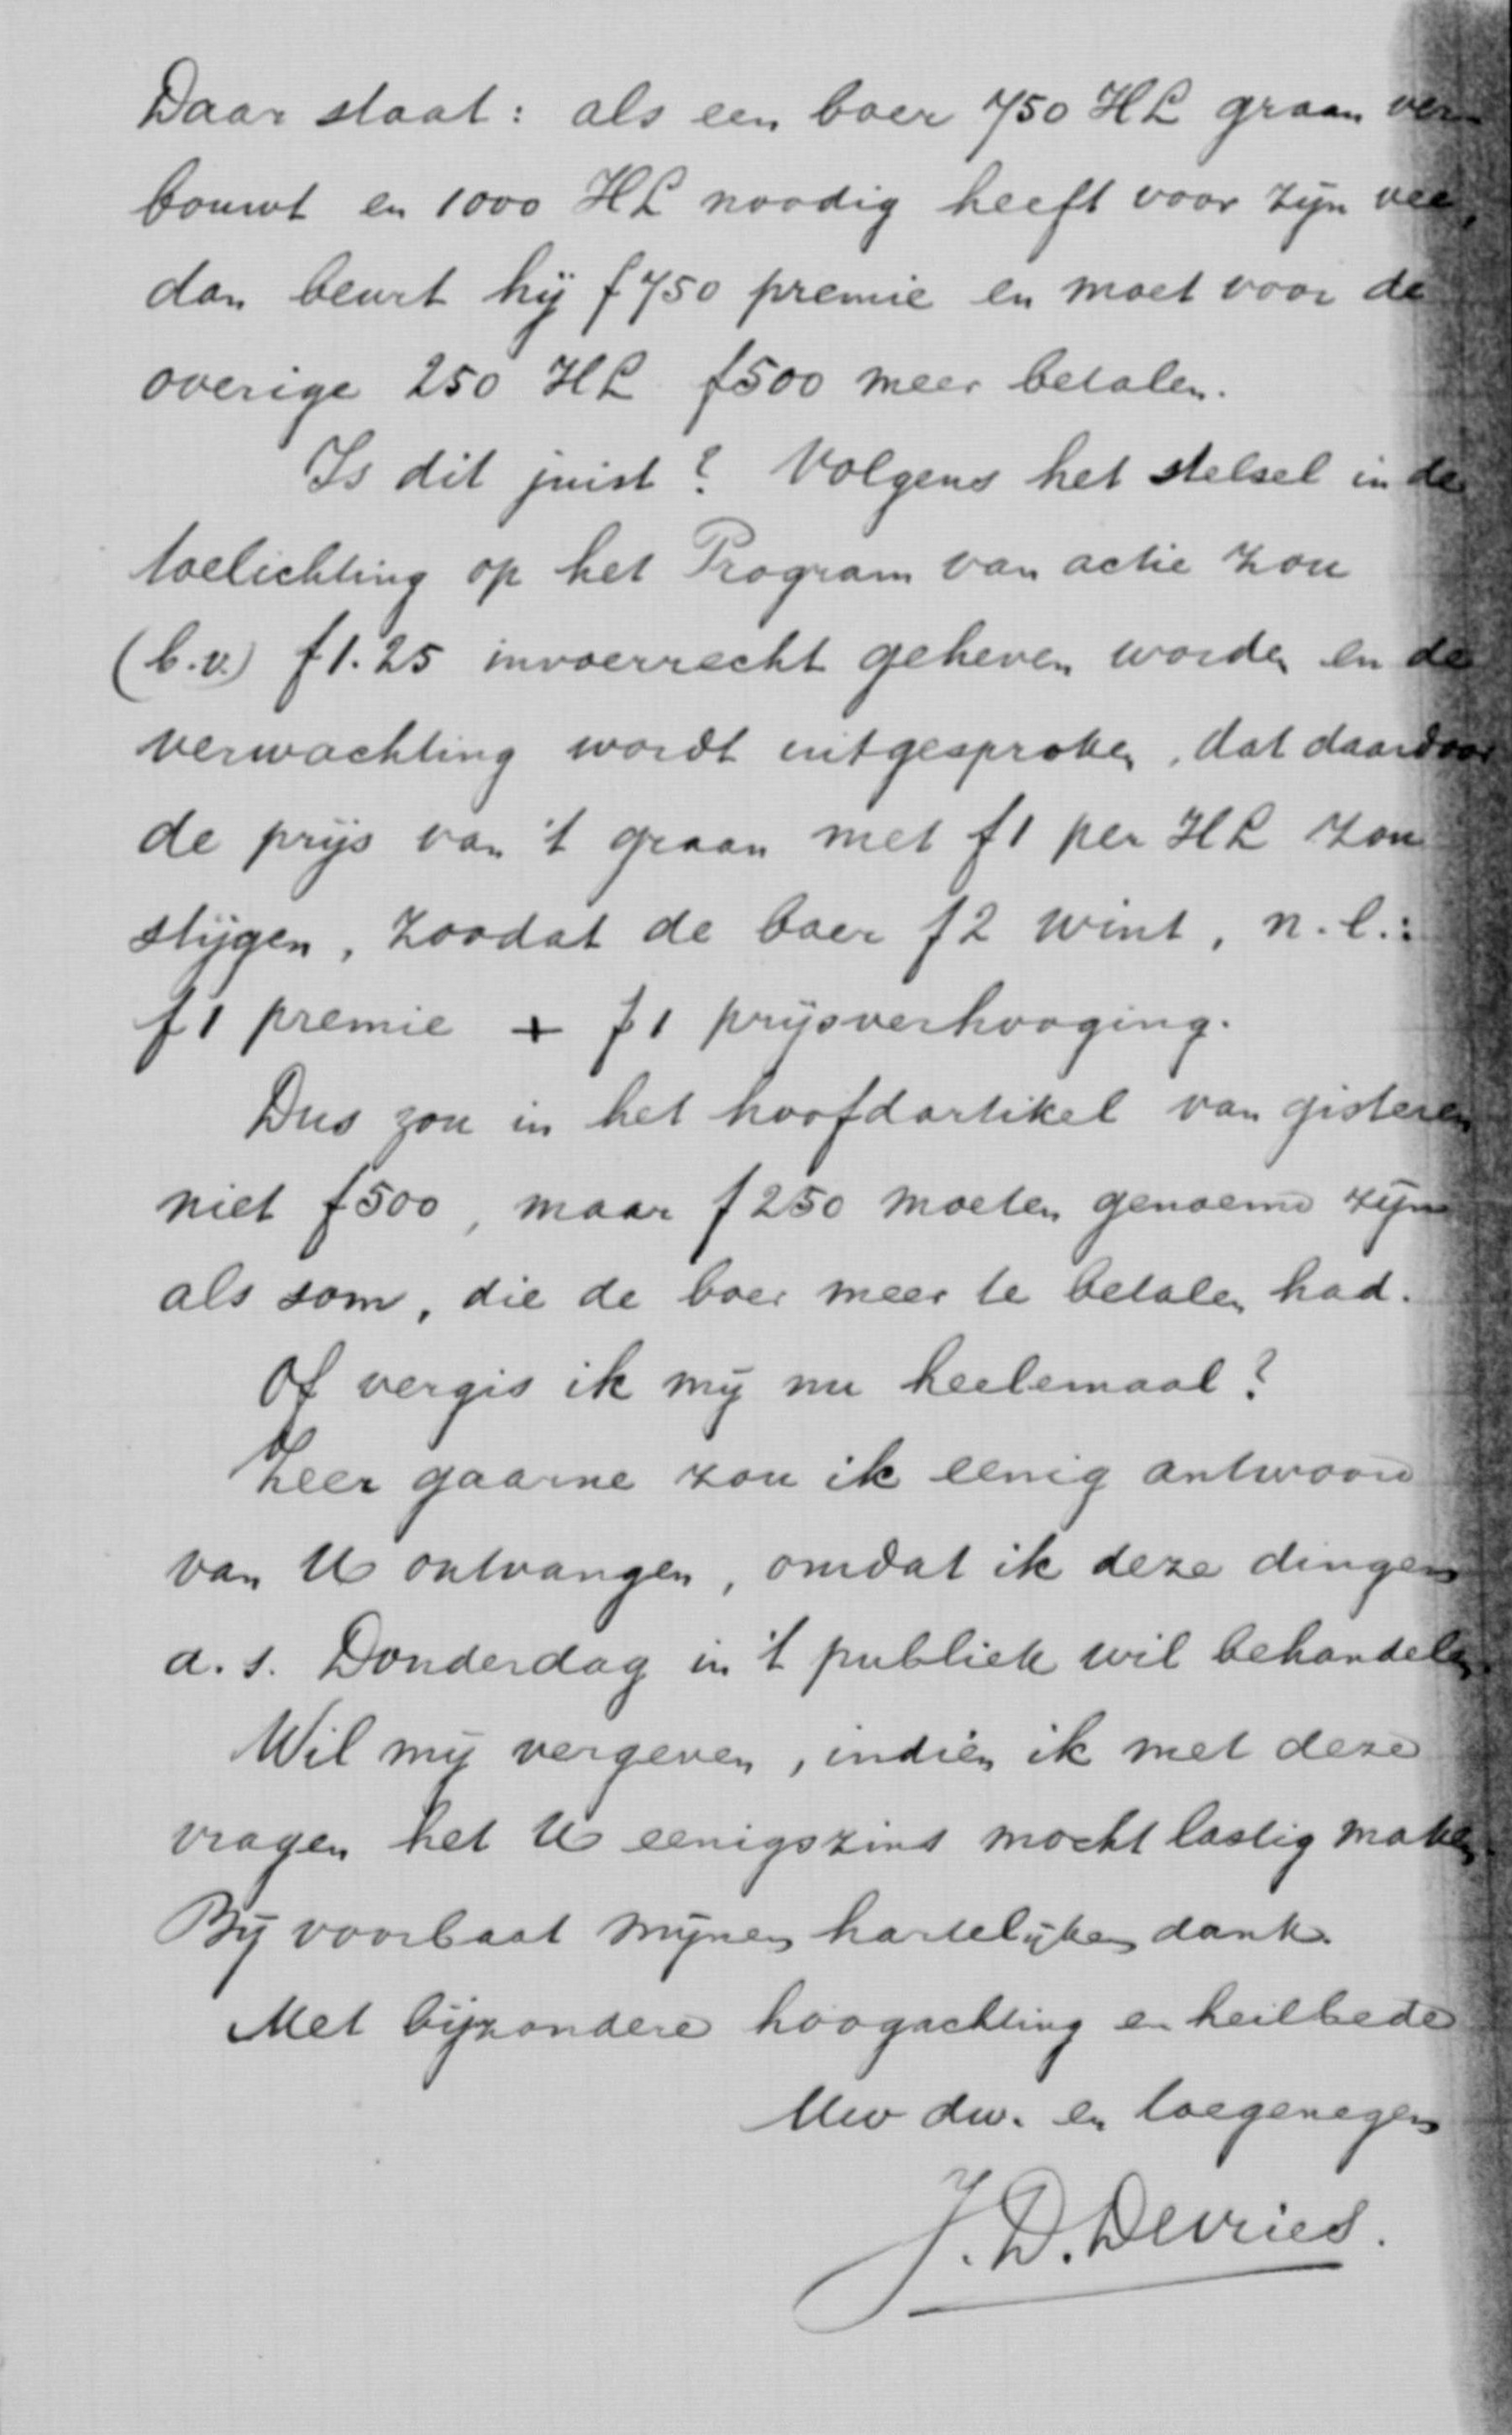 Daar staat: als een boer 750 HL graan ver-
bouwt en 1000 HL noodig heeft voor zijn vee,
dan beurt hij f 750 premie en moet voor de
overige 250 HL f500 meer betalen.
Is dit juist? Volgens het stelsel in de
toelichting op het Program van actie zou
(b.v.) f1.25 invoerrecht geheven worden en de
verwachting wordt uitgesproken, dat daardoor
de prijs van 't graan met f1 per HL zou
stijgen, zoodat de boer f2 wint, n.l.:
f1 premie + f1 prijsverhooging.
Dus zou in het hoofdartikel van gisteren
niet f500, maar f250 moeten genoemd zijn
als som, die de boer meer te betalen had.
Of vergis ik mij nu heelemaal?
Zeer gaarne zou ik eenig antwoord
van U ontvangen, omdat ik deze dingen
a.s. Donderdag in 't publiek wil behandelen.
Wil mij vergeven, indien ik met deze
vragen het U eenigszins mocht lastig maken.
Bij voorbaat mijnen hartelijken dank.
Met bijzondere hoogachting en heilbede
Uw dw. en toegenegen
J. D. Devries.